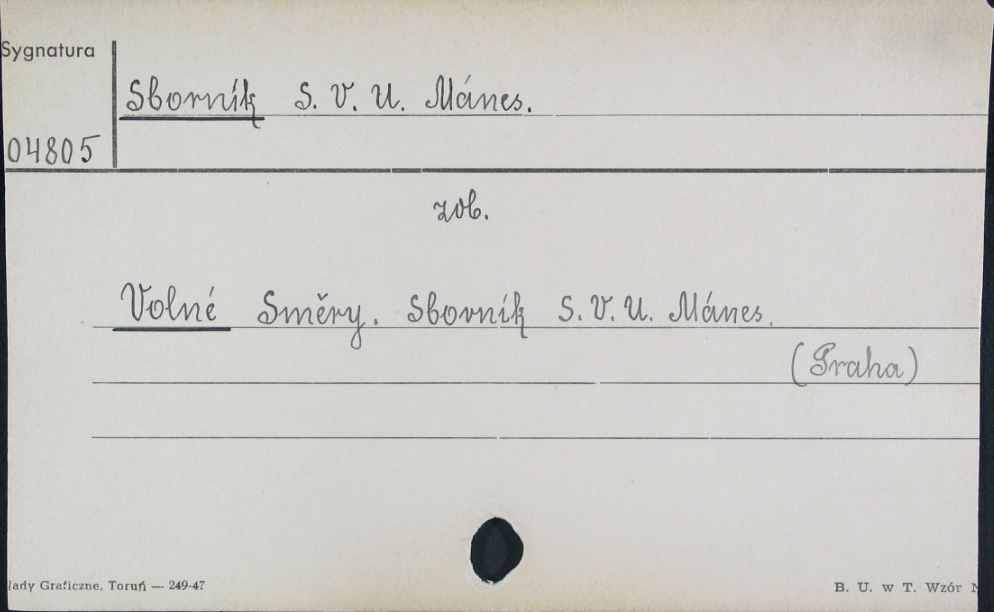 Sygnatura
Sborník S. V. U. Mánes.
04805
zob.
Volné Směry. Sborník S. V. U. Mánes.
(Praha)
łady Graficzne, Toruń — 249-47
B. U. w T. Wzór N